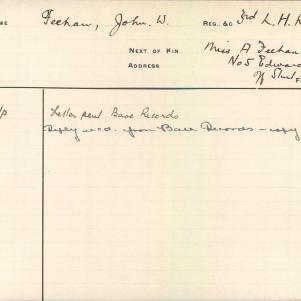 ME Feehan, John. W. REG., &C 3rd L. H. R
NEXT OF KIN Miss A Feehan
ADDRESS No 5 Edward
St
/p Letter sent Base Records
Reply rec'd. from Base Records - copy